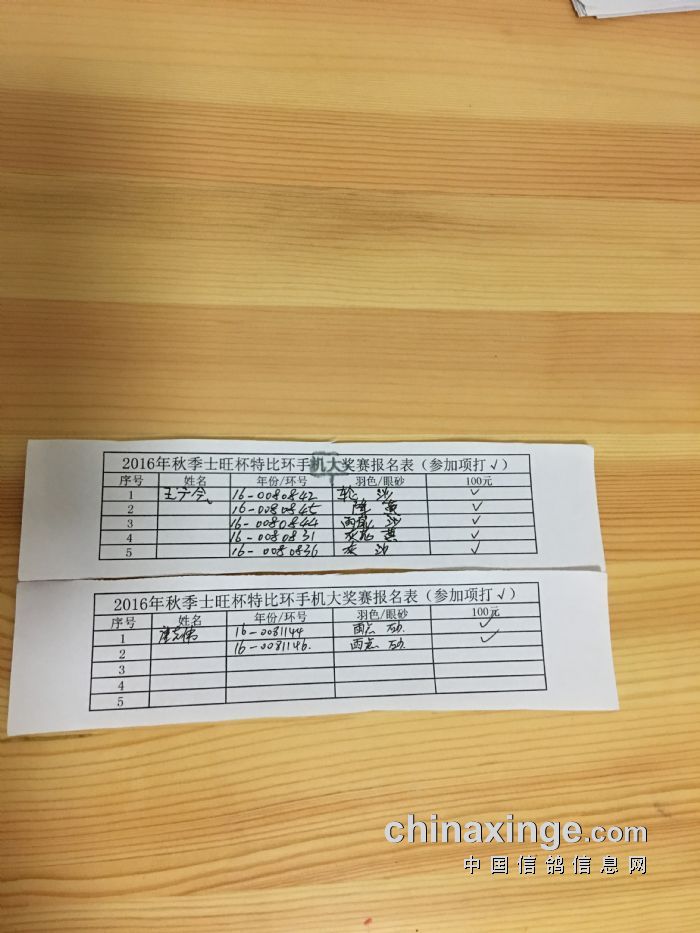 2016年秋季士旺杯特比环手机大奖赛报名表（参加项打√）
序号 姓名 年份/环号 羽色/眼砂 100元
1 16-0080842 轮 沙 ✓
2 16-0080845 黄 ✓
3 16-0080844 雨 沙 ✓
4 16-0080831 灰 黄 ✓
5 16-0080836 灰 沙 ✓
2016年秋季士旺杯特比环手机大奖赛报名表（参加项打√）
序号 姓名 年份/环号 羽色/眼砂 100元
1 16-0081144 雨点 ✓
2 16-0081146. 雨点 ✓
3
4
5
chinaxinge.com
中国信鸽信息网